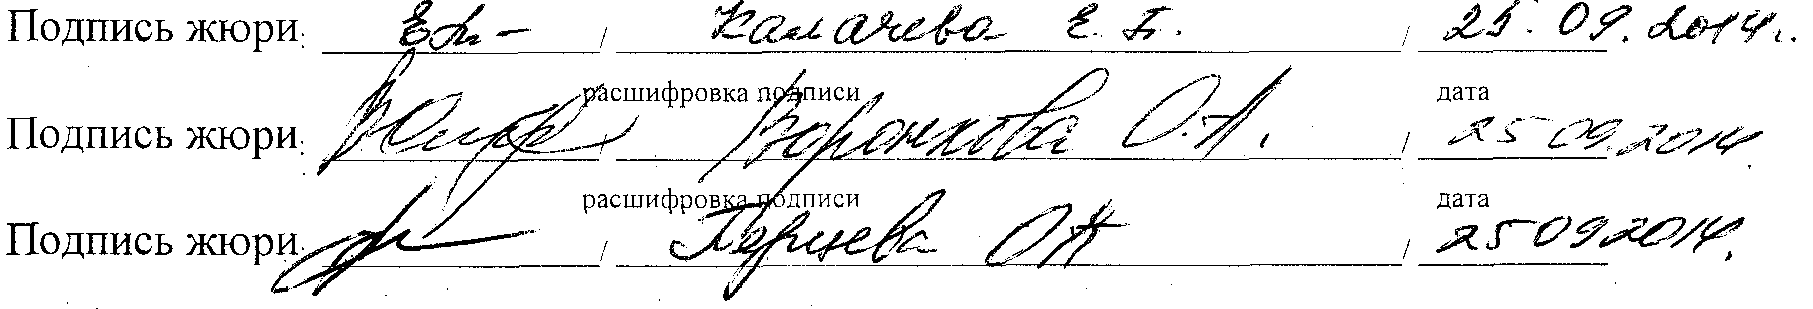 Подпись жюри: / Калачева Е. Б. / 25.09.2014г.
расшифровка подписи дата
Подпись жюри: / Воронкова О.А. / 25 09.2014.
расшифровка подписи дата
Подпись жюри: / Перцева ОА / 25 09 2014.